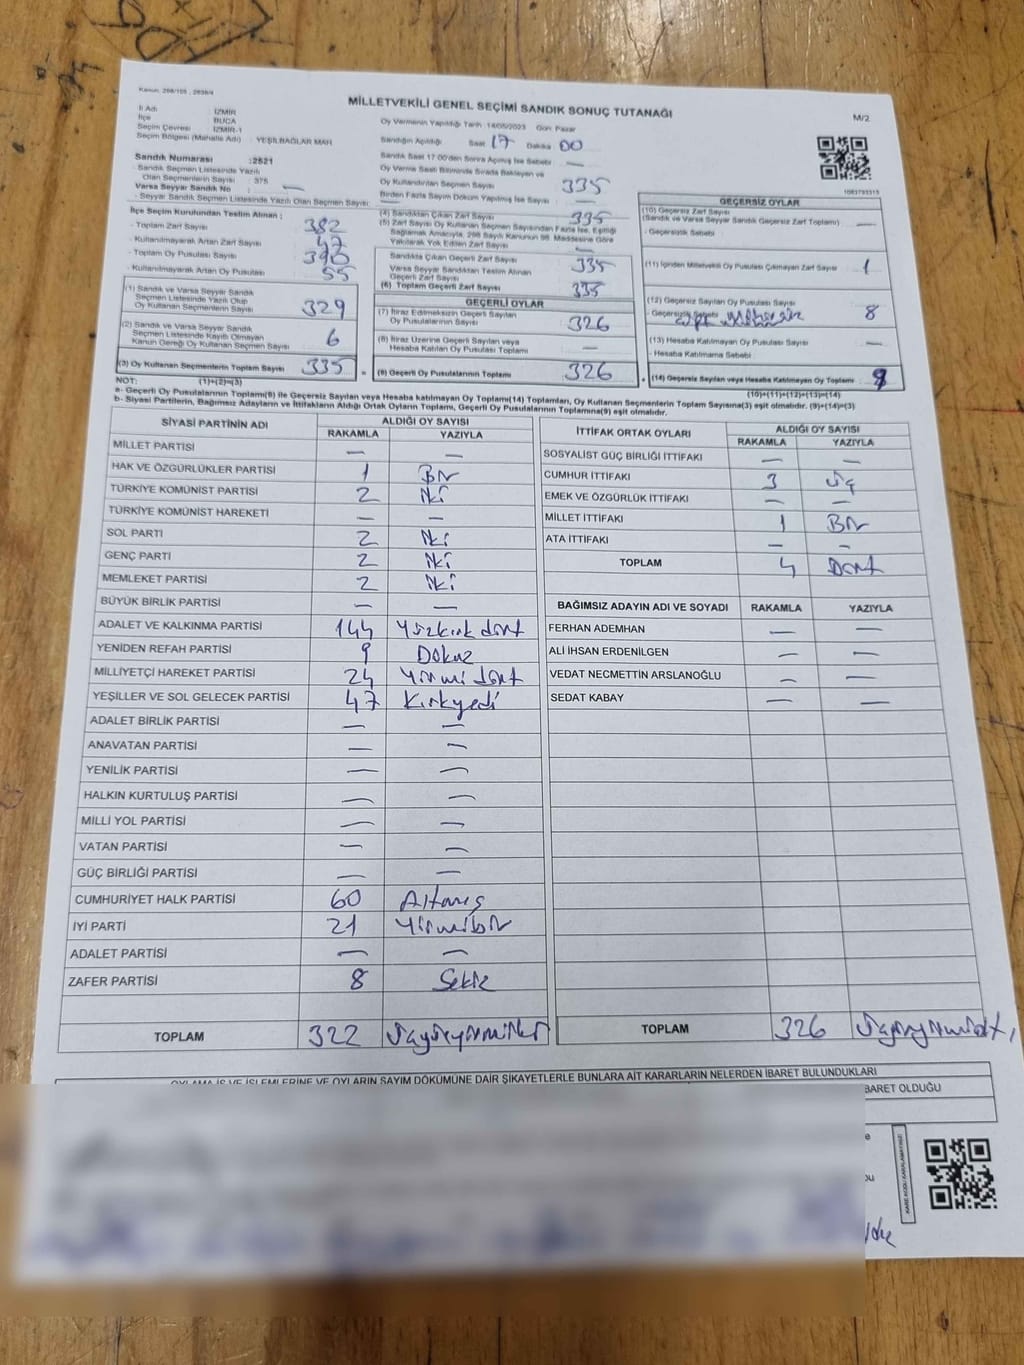 Kanun: 298/105 , 2839/4
MİLLETVEKİLİ GENEL SEÇİMİ SANDIK SONUÇ TUTANAĞI
M/2
İl Adı : İZMİR
İlçe : BUCA
Seçim Çevresi : İZMİR-1
Seçim Bölgesi (Mahalle Adı) : YEŞİLBAĞLAR MAH.
Sandık Numarası :2521
Sandık Seçmen Listesinde Yazılı
Olan Seçmenlerin Sayısı : 375
Varsa Seyyar Sandık No : —
Seyyar Sandık Seçmen Listesinde Yazılı Olan Seçmen Sayısı : —
Oy Vermenin Yapıldığı Tarih : 14/05/2023 Gün: Pazar
Sandığın Açıldığı Saat 17 Dakika 00
Sandık Saat 17.00'den Sonra Açılmış İse Sebebi —
Oy Verme Saati Bitiminde Sırada Bekleyen ve
Oy Kullandırılan Seçmen Sayısı 335
Birden Fazla Sayım Döküm Yapılmış İse Sayısı —
İlçe Seçim Kurulundan Teslim Alınan ;
- Toplam Zarf Sayısı 382
- Kullanılmayarak Artan Zarf Sayısı 47
- Toplam Oy Pusulası Sayısı 390
- Kullanılmayarak Artan Oy Pusulası 55
(1) Sandık ve Varsa Seyyar Sandık
Seçmen Listesinde Yazılı Olup
Oy Kullanan Seçmenlerin Sayısı 329
(2) Sandık ve Varsa Seyyar Sandık
Seçmen Listesinde Kayıtlı Olmayan
Kanun Gereği Oy Kullanan Seçmen Sayısı 6
(3) Oy Kullanan Seçmenlerin Toplam Sayısı 335
(4) Sandıktan Çıkan Zarf Sayısı 335
(5) Zarf Sayısı Oy Kullanan Seçmen Sayısından Fazla İse, Eşitliği
Sağlamak Amacıyla, 298 Sayılı Kanunun 98. Maddesine Göre
Yakılarak Yok Edilen Zarf Sayısı —
Sandıkta Çıkan Geçerli Zarf Sayısı 335
Varsa Seyyar Sandıktan Teslim Alınan
Geçerli Zarf Sayısı
(6) Toplam Geçerli Zarf Sayısı 335
GEÇERLİ OYLAR
(7) İtiraz Edilmeksizin Geçerli Sayılan
Oy Pusulalarının Sayısı 326
(8) İtiraz Üzerine Geçerli Sayılan veya
Hesaba Katılan Oy Pusulası Toplamı —
(9) Geçerli Oy Pusulalarının Toplamı 326
1083793315
GEÇERSİZ OYLAR
(10) Geçersiz Zarf Sayısı
(Sandık ve Varsa Seyyar Sandık Geçersiz Zarf Toplamı) —
- Geçersizlik Sebebi :
(11) İçinden Milletvekili Oy Pusulası Çıkmayan Zarf Sayısı 1
(12) Geçersiz Sayılan Oy Pusulası Sayısı 8
- Geçersizlik Sebebi
(13) Hesaba Katılmayan Oy Pusulası Sayısı —
- Hesaba Katılmama Sebebi
(14) Geçersiz Sayılan veya Hesaba Katılmayan Oy Toplamı 9
NOT: (1)+(2)=(3) (10)+(11)+(12)+(13)=(14)
a- Geçerli Oy Pusulaları Toplamı(9) ile Geçersiz Sayılan veya Hesaba Katılmayan Oy Toplamı(14) Toplamları, Oy Kullanan Seçmenlerin Toplam Sayısına(3) eşit olmalıdır. (9)+(14)=(3)
b- Siyasi Partilerin, Bağımsız Adayların ve İttifakların Aldığı Ortak Oyların Toplamı, Geçerli Oy Pusulalarının Toplamına(9) eşit olmalıdır.
SİYASİ PARTİNİN ADI ALDIĞI OY SAYISI
RAKAMLA YAZIYLA
MİLLET PARTİSİ — —
HAK VE ÖZGÜRLÜKLER PARTİSİ 1 Bir
TÜRKİYE KOMÜNİST PARTİSİ 2 iki
TÜRKİYE KOMÜNİST HAREKETİ — —
SOL PARTİ 2 iki
GENÇ PARTİ 2 iki
MEMLEKET PARTİSİ 2 iki
BÜYÜK BİRLİK PARTİSİ — —
ADALET VE KALKINMA PARTİSİ 144 Yüzkırk dört
YENİDEN REFAH PARTİSİ 9 Dokuz
MİLLİYETÇİ HAREKET PARTİSİ 24 Yirmi dört
YEŞİLLER VE SOL GELECEK PARTİSİ 47 Kırkyedi
ADALET BİRLİK PARTİSİ — —
ANAVATAN PARTİSİ — —
YENİLİK PARTİSİ — —
HALKIN KURTULUŞ PARTİSİ — —
MİLLİ YOL PARTİSİ — —
VATAN PARTİSİ — —
GÜÇ BİRLİĞİ PARTİSİ — —
CUMHURİYET HALK PARTİSİ 60 Altmış
İYİ PARTİ 21 Yirmibir
ADALET PARTİSİ — —
ZAFER PARTİSİ 8 Sekiz
TOPLAM 322 üçyüzyirmiiki
İTTİFAK ORTAK OYLARI ALDIĞI OY SAYISI
RAKAMLA YAZIYLA
SOSYALİST GÜÇ BİRLİĞİ İTTİFAKI — —
CUMHUR İTTİFAKI 3 üç
EMEK VE ÖZGÜRLÜK İTTİFAKI — —
MİLLET İTTİFAKI 1 Bir
ATA İTTİFAKI — —
TOPLAM 4 Dört
BAĞIMSIZ ADAYIN ADI VE SOYADI RAKAMLA YAZIYLA
FERHAN ADEMHAN — —
ALİ İHSAN ERDENİLGEN — —
VEDAT NECMETTİN ARSLANOĞLU — —
SEDAT KABAY — —
TOPLAM 326
OYLAMA İŞ VE İŞLEMLERİNE VE OYLARIN SAYIM DÖKÜMÜNE DAİR ŞİKAYETLERLE BUNLARA AİT KARARLARIN NELERDEN İBARET BULUNDUKLARI
BARET OLDUĞU